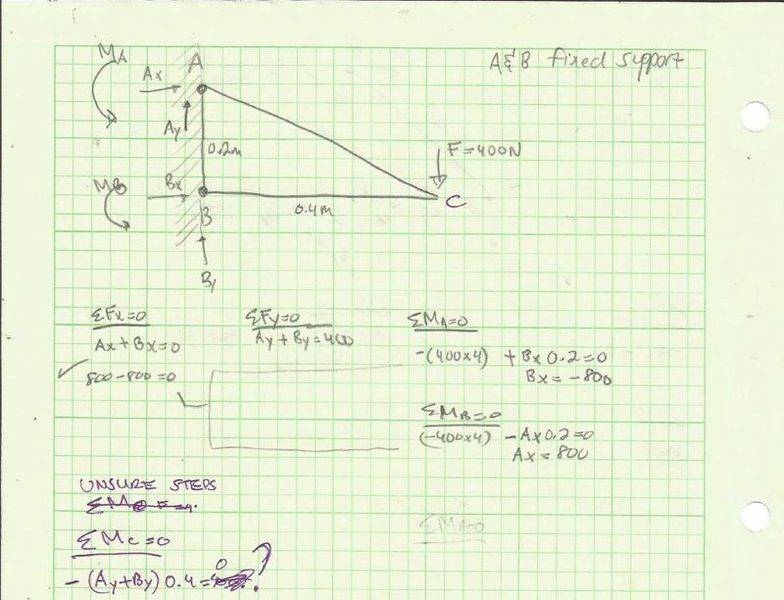 A&B fixed support
MA
Ax
A
Ay
0.2m
F=400N
MB
Bx
B
0.4m
C
By
ΣFx=0
Ax+Bx=0
800-800=0
ΣFy=0
Ay+By=400
ΣMA=0
-(400x4) +Bx0.2=0
Bx=-800
ΣMB=0
(-400x4) -Ax0.2=0
Ax=800
UNSURE STEPS
ΣMC=0
-(Ay+By)0.4=0?
ΣMA=0